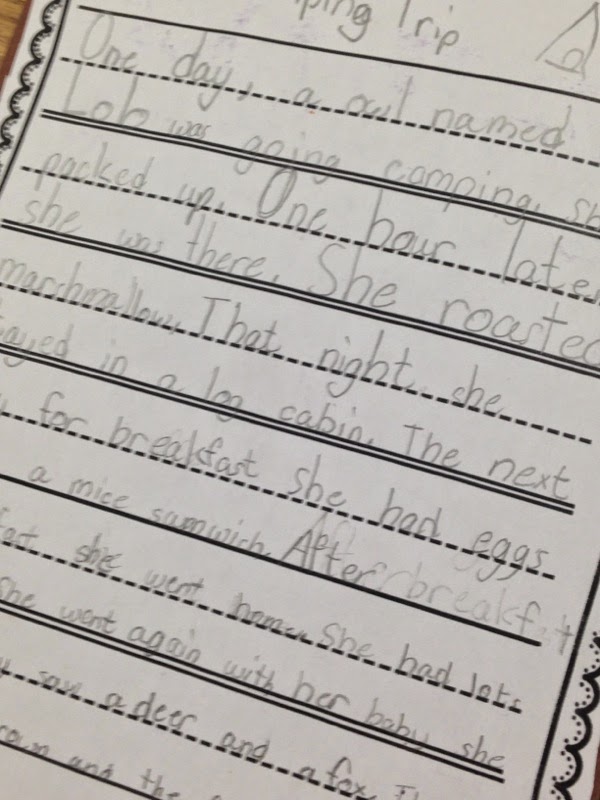 ping Trip
One day, a owl named
Lob was going camping. sh
packed up. One hour later
she was there. She roasted
marshmallow. That night she
ayed in a log cabin. The next
for breakfast she had eggs
a mice samwich. After breakf
fast she went home. She had lots
She went again with her baby she
saw a deer and a fox.
and the